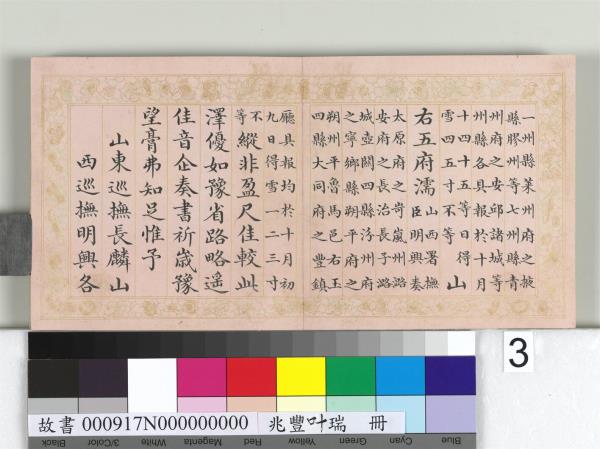 一州縣萊州府之掖
縣膠州等七州縣青
州府之安邱諸城等
州縣各具報於十月
十四十五等日得
雪四五寸不等
山
右五府濡
山西署撫
臣明興奏
太原府之岢嵐州潞
安府之長治長子潞
城壺關四縣汾州府
之寧鄉縣朔平府之
朔州平魯馬邑右玉
四縣大同府之豐鎮
廳具報均於十月初
九日得雪一二三寸
不
等
縱非盈尺佳較此
澤優如豫省路略遥
佳音企奏書祈歲豫
望膏弗知足惟予
山東巡撫長麟山
西巡撫明興各
3
故書 000917N000000000 兆豐叶瑞 冊
Black 3/Color White Magenta Red Yellow Green Cyan Blue